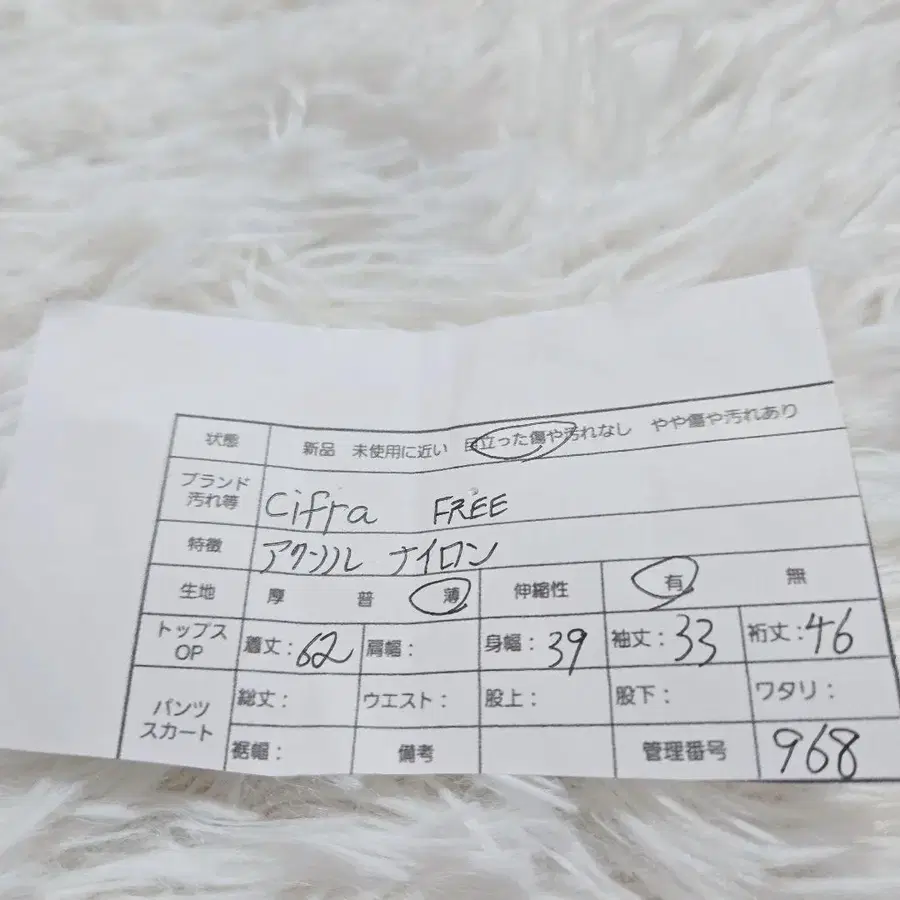 状態 新品 未使用に近い 目立った傷や汚れなし やや傷や汚れあり
ブランド 汚れ等 cifra FREE
特徴 アクリル ナイロン
生地 厚 普 薄 伸縮性 有 無
トップス OP 着丈：62 肩幅： 身幅：39 袖丈：33 裄丈：46
パンツ スカート 総丈： ウエスト： 股上： 股下： ワタリ：
裾幅： 備考 管理番号 968